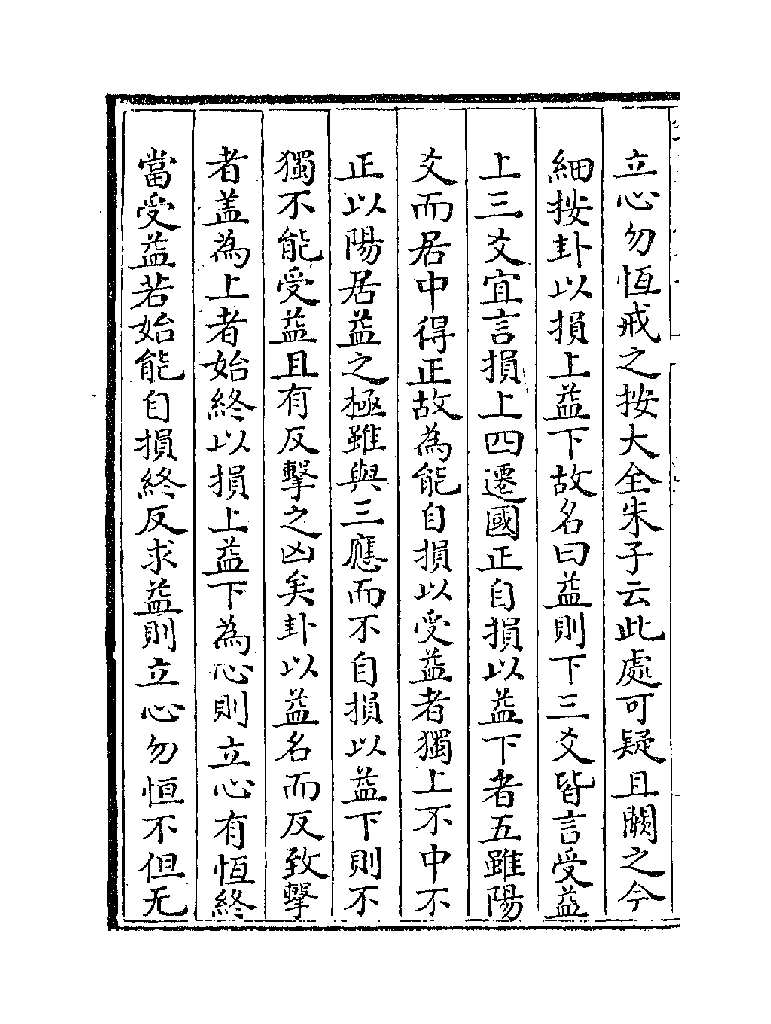 立心勿恒戒之按大全朱子云此處可疑且闕之今
細按卦以損上益下故名曰益則下三爻皆言受益
上三爻宜言損上四遷國正自損以益下者五雖陽
爻而居中得正故為能自損以受益者獨上不中不
正以陽居益之極雖與三應而不自損以益下則不
獨不能受益且有反擊之凶矣卦以益名而反致擊
者盖為上者始終以損上益下為心則立心有恆終
當受益若始能自損終反求益則立心勿恒不但无